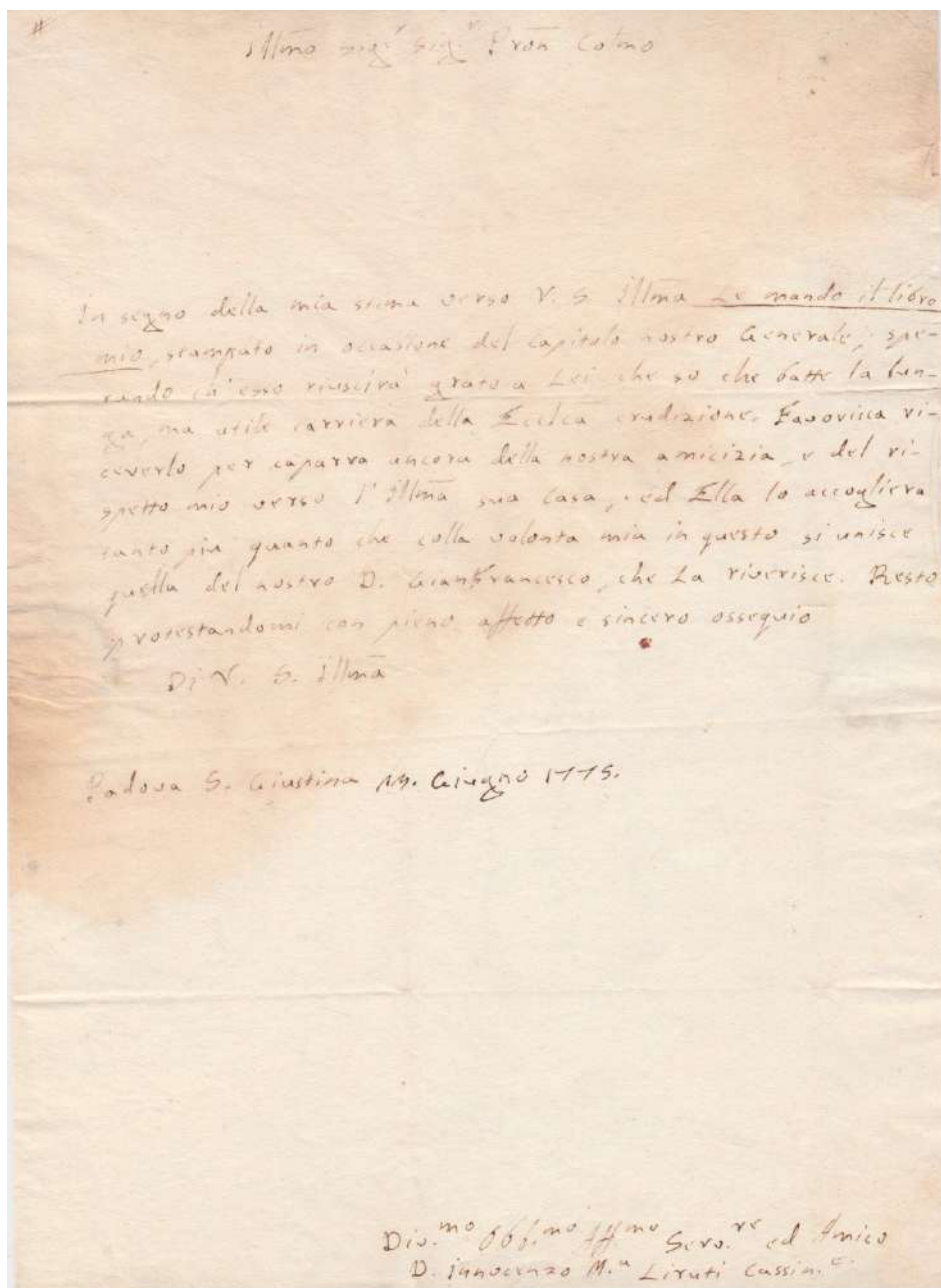 Illmo Sig.r Sig.r Pron Colmo
In segno della mia stima verso V. S. Illma Le mando il libro
mio, stampato in occasione del Capitolo nostro Generale, spe-
rando ch'esso riuscirà grato a Lei che so che batte la lun-
ga, ma utile carriera della Eccl.ca erudizione. Favorisca ri-
ceverlo per caparra ancora della nostra amicizia, e del ri-
spetto mio verso l'Illma sua Casa, ed Ella lo accoglierà
tanto più quanto che colla volontà mia in questo si unisce
quella del nostro D. Gianfrancesco, che La riverisce. Resto
protestandomi con pieno affetto e sincero ossequio
Di V. S. Illma
Padova S. Giustina Giugno 1775.
Div.mo Obb.mo Aff.mo Serv.re ed Amico
D. Innocenzo M.a Liruti Cassin.e